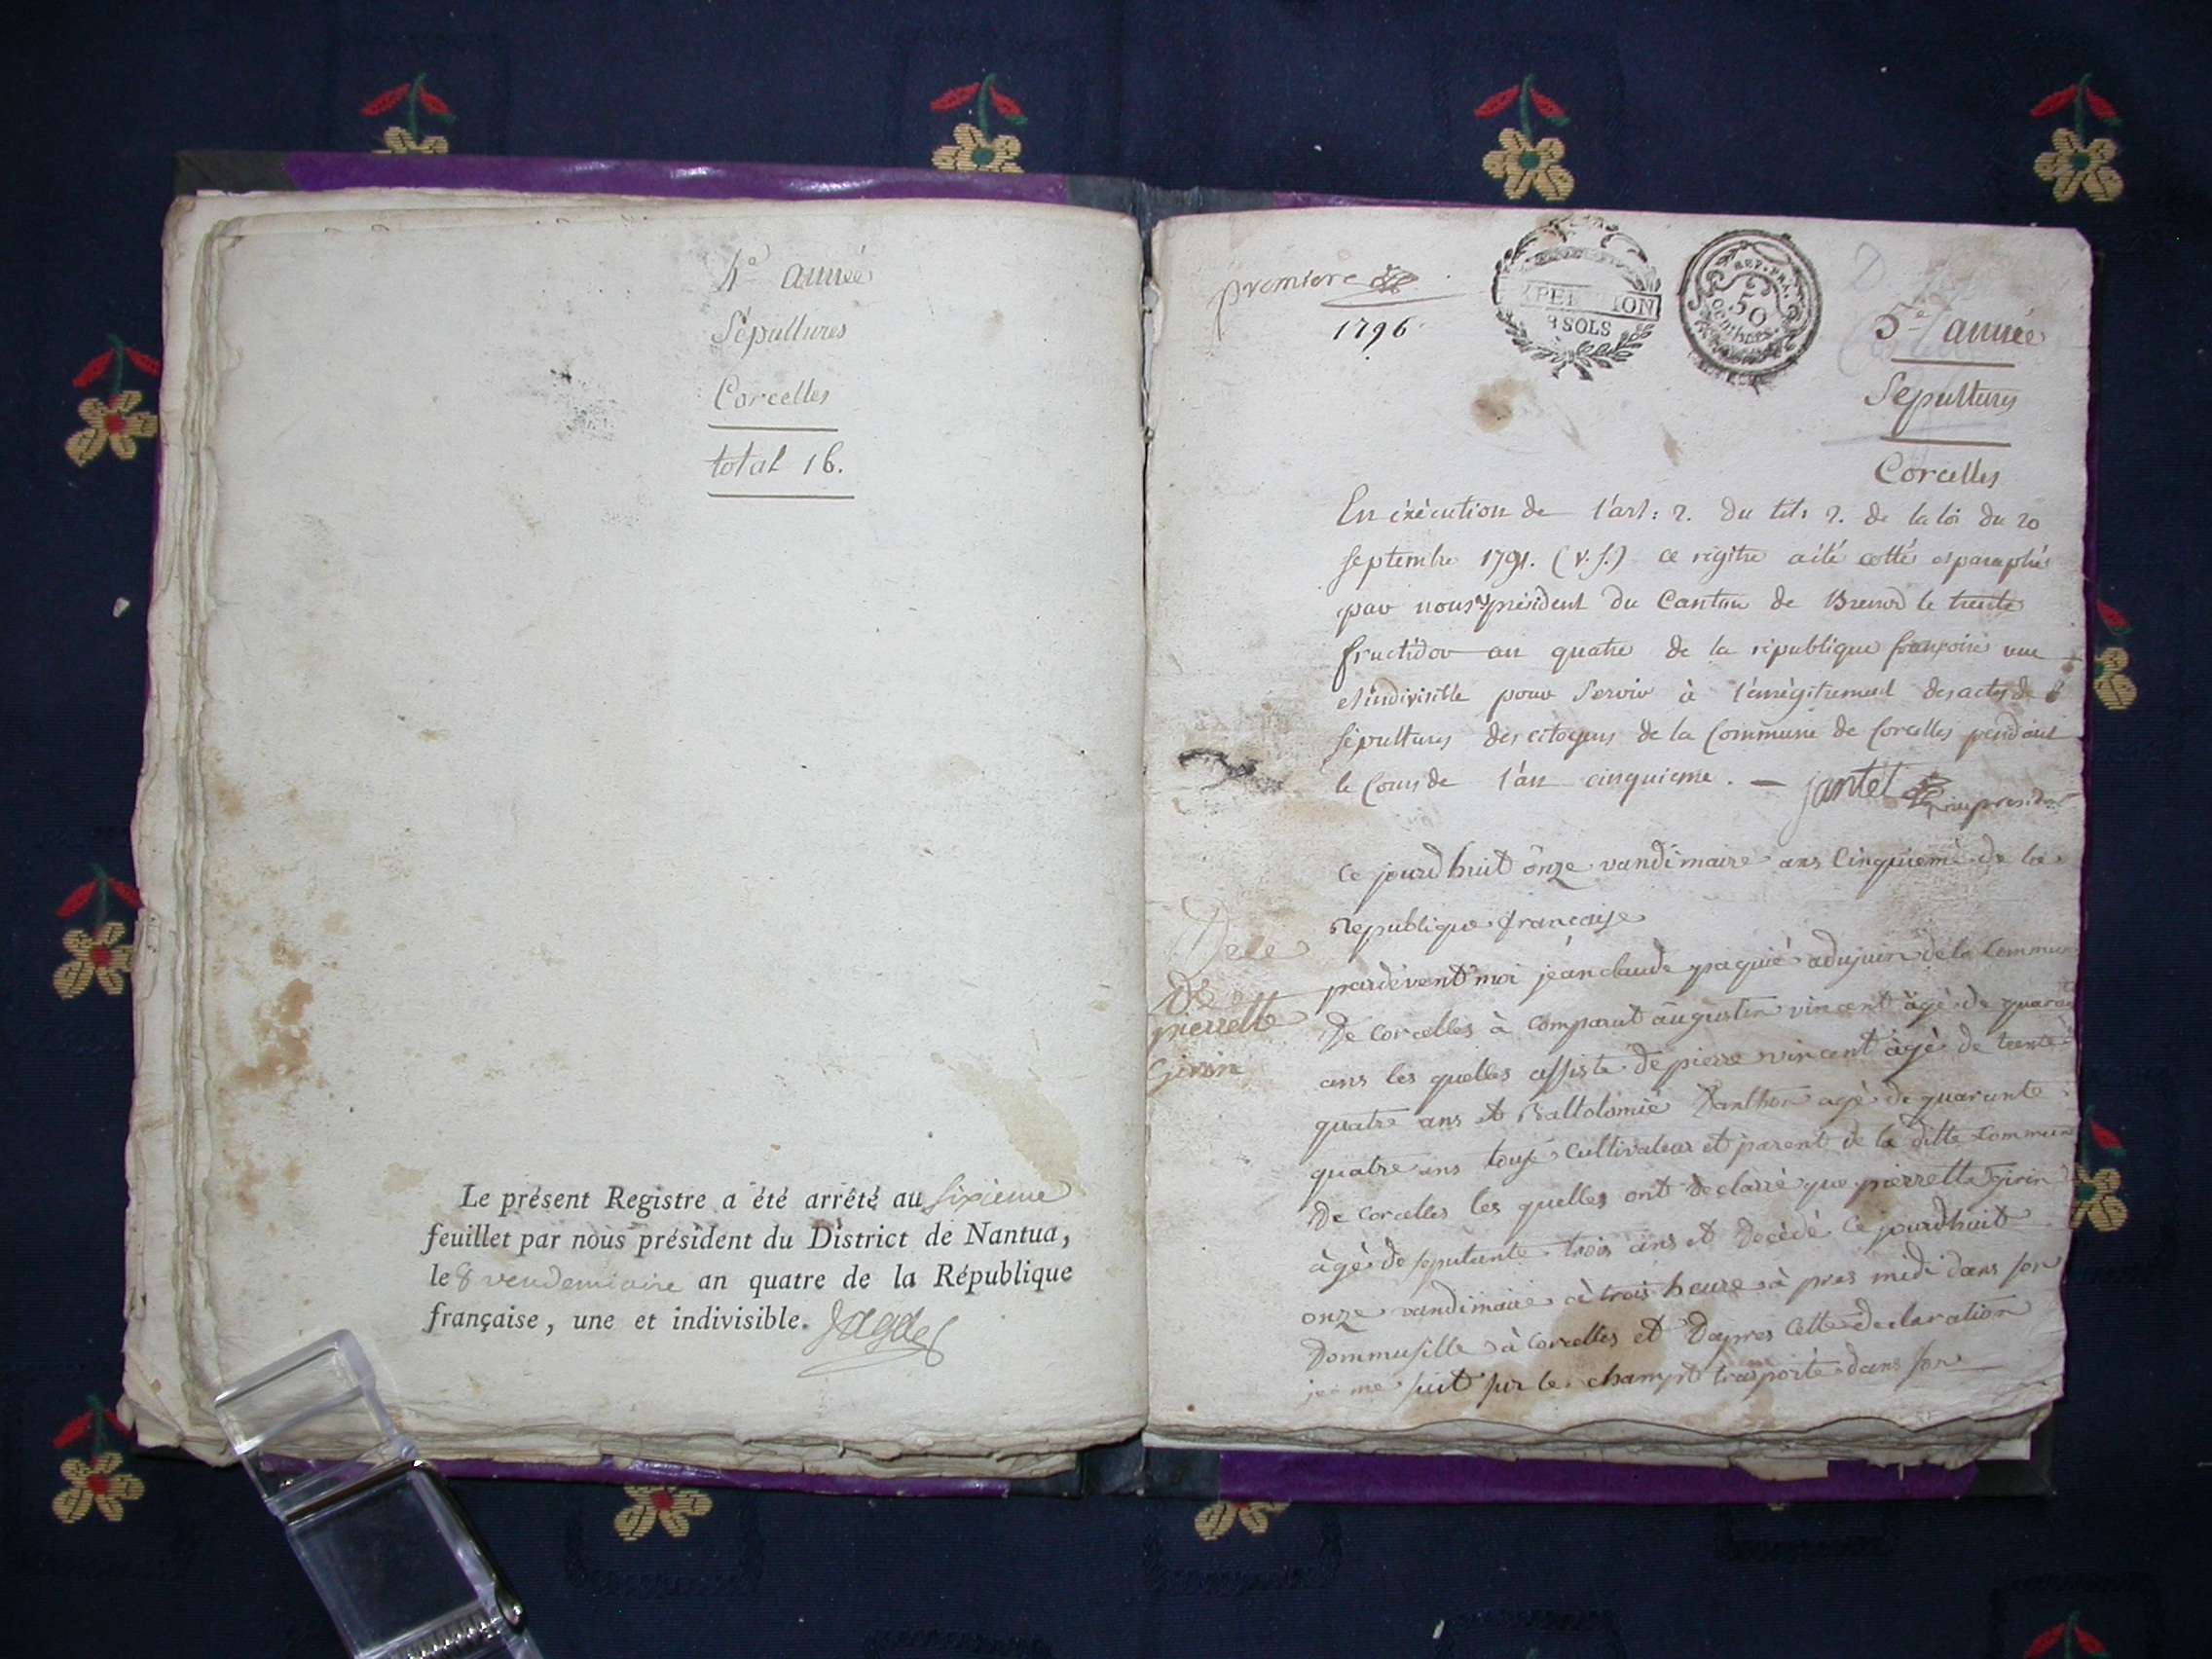 4e année
Sépultures
Corcelles
total 16.
Le présent Registre a été arrêté au sixieme
feuillet par nous président du District de Nantua,
le 8 vendemiaire an quatre de la République
française, une et indivisible.
premiere
1796
SOLS
REP. FRA.
50
5e année
Sépultures
Corcelles
En éxécution de l'art: 2. du tit: 2. de la loi du 20
septembre 1791. (v.s.) ce régitre a été cotté et paraphé
par nous président du Canton de Brenod le trente
fructidor an quatre de la république françoise une
et indivisible pour servir à l'enrégitrement des actes de
sépultures des citoyens de la Commune de Corcelles pendant
le Cours de l'an cinquieme. — jantet
Ce jourdhuit onze vandimaire ans Cinquieme de la
Republique francaise
Dece
de
pierrette
Girin
pardevent moi jean claude paquié adujuin de la Commune
De corcelles à comparut augustin vincent âgé de quarante
ans les quelles assiste de pierre vincent âgé de trente
quatre ans et Baltolomié Danthon agé de quarante
quatre ans tous cultivateur et parent de la ditte Commune
De corcelles les quelles ont declarré que pierrette Girin
àgé de seputante trois ans et Décédé Ce jourdhuit
onze vandimaire à trois heure à pres midi dans son
Dommusille à Corcelles et Dapres Cette declaration
je me suit sur le champt trasporté dans son